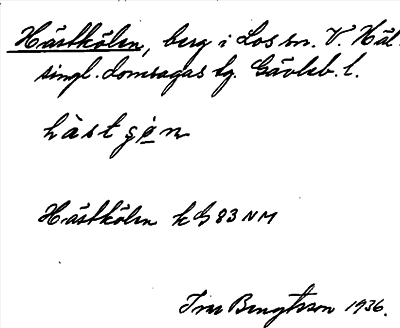 Hästkölen, berg i Los sn. V. Häl-
singl. domsagas tg. Gävleb. l.
hàstçø̣n
Hästkölen k G 83 NM
Ivar Bengtsson 1936.